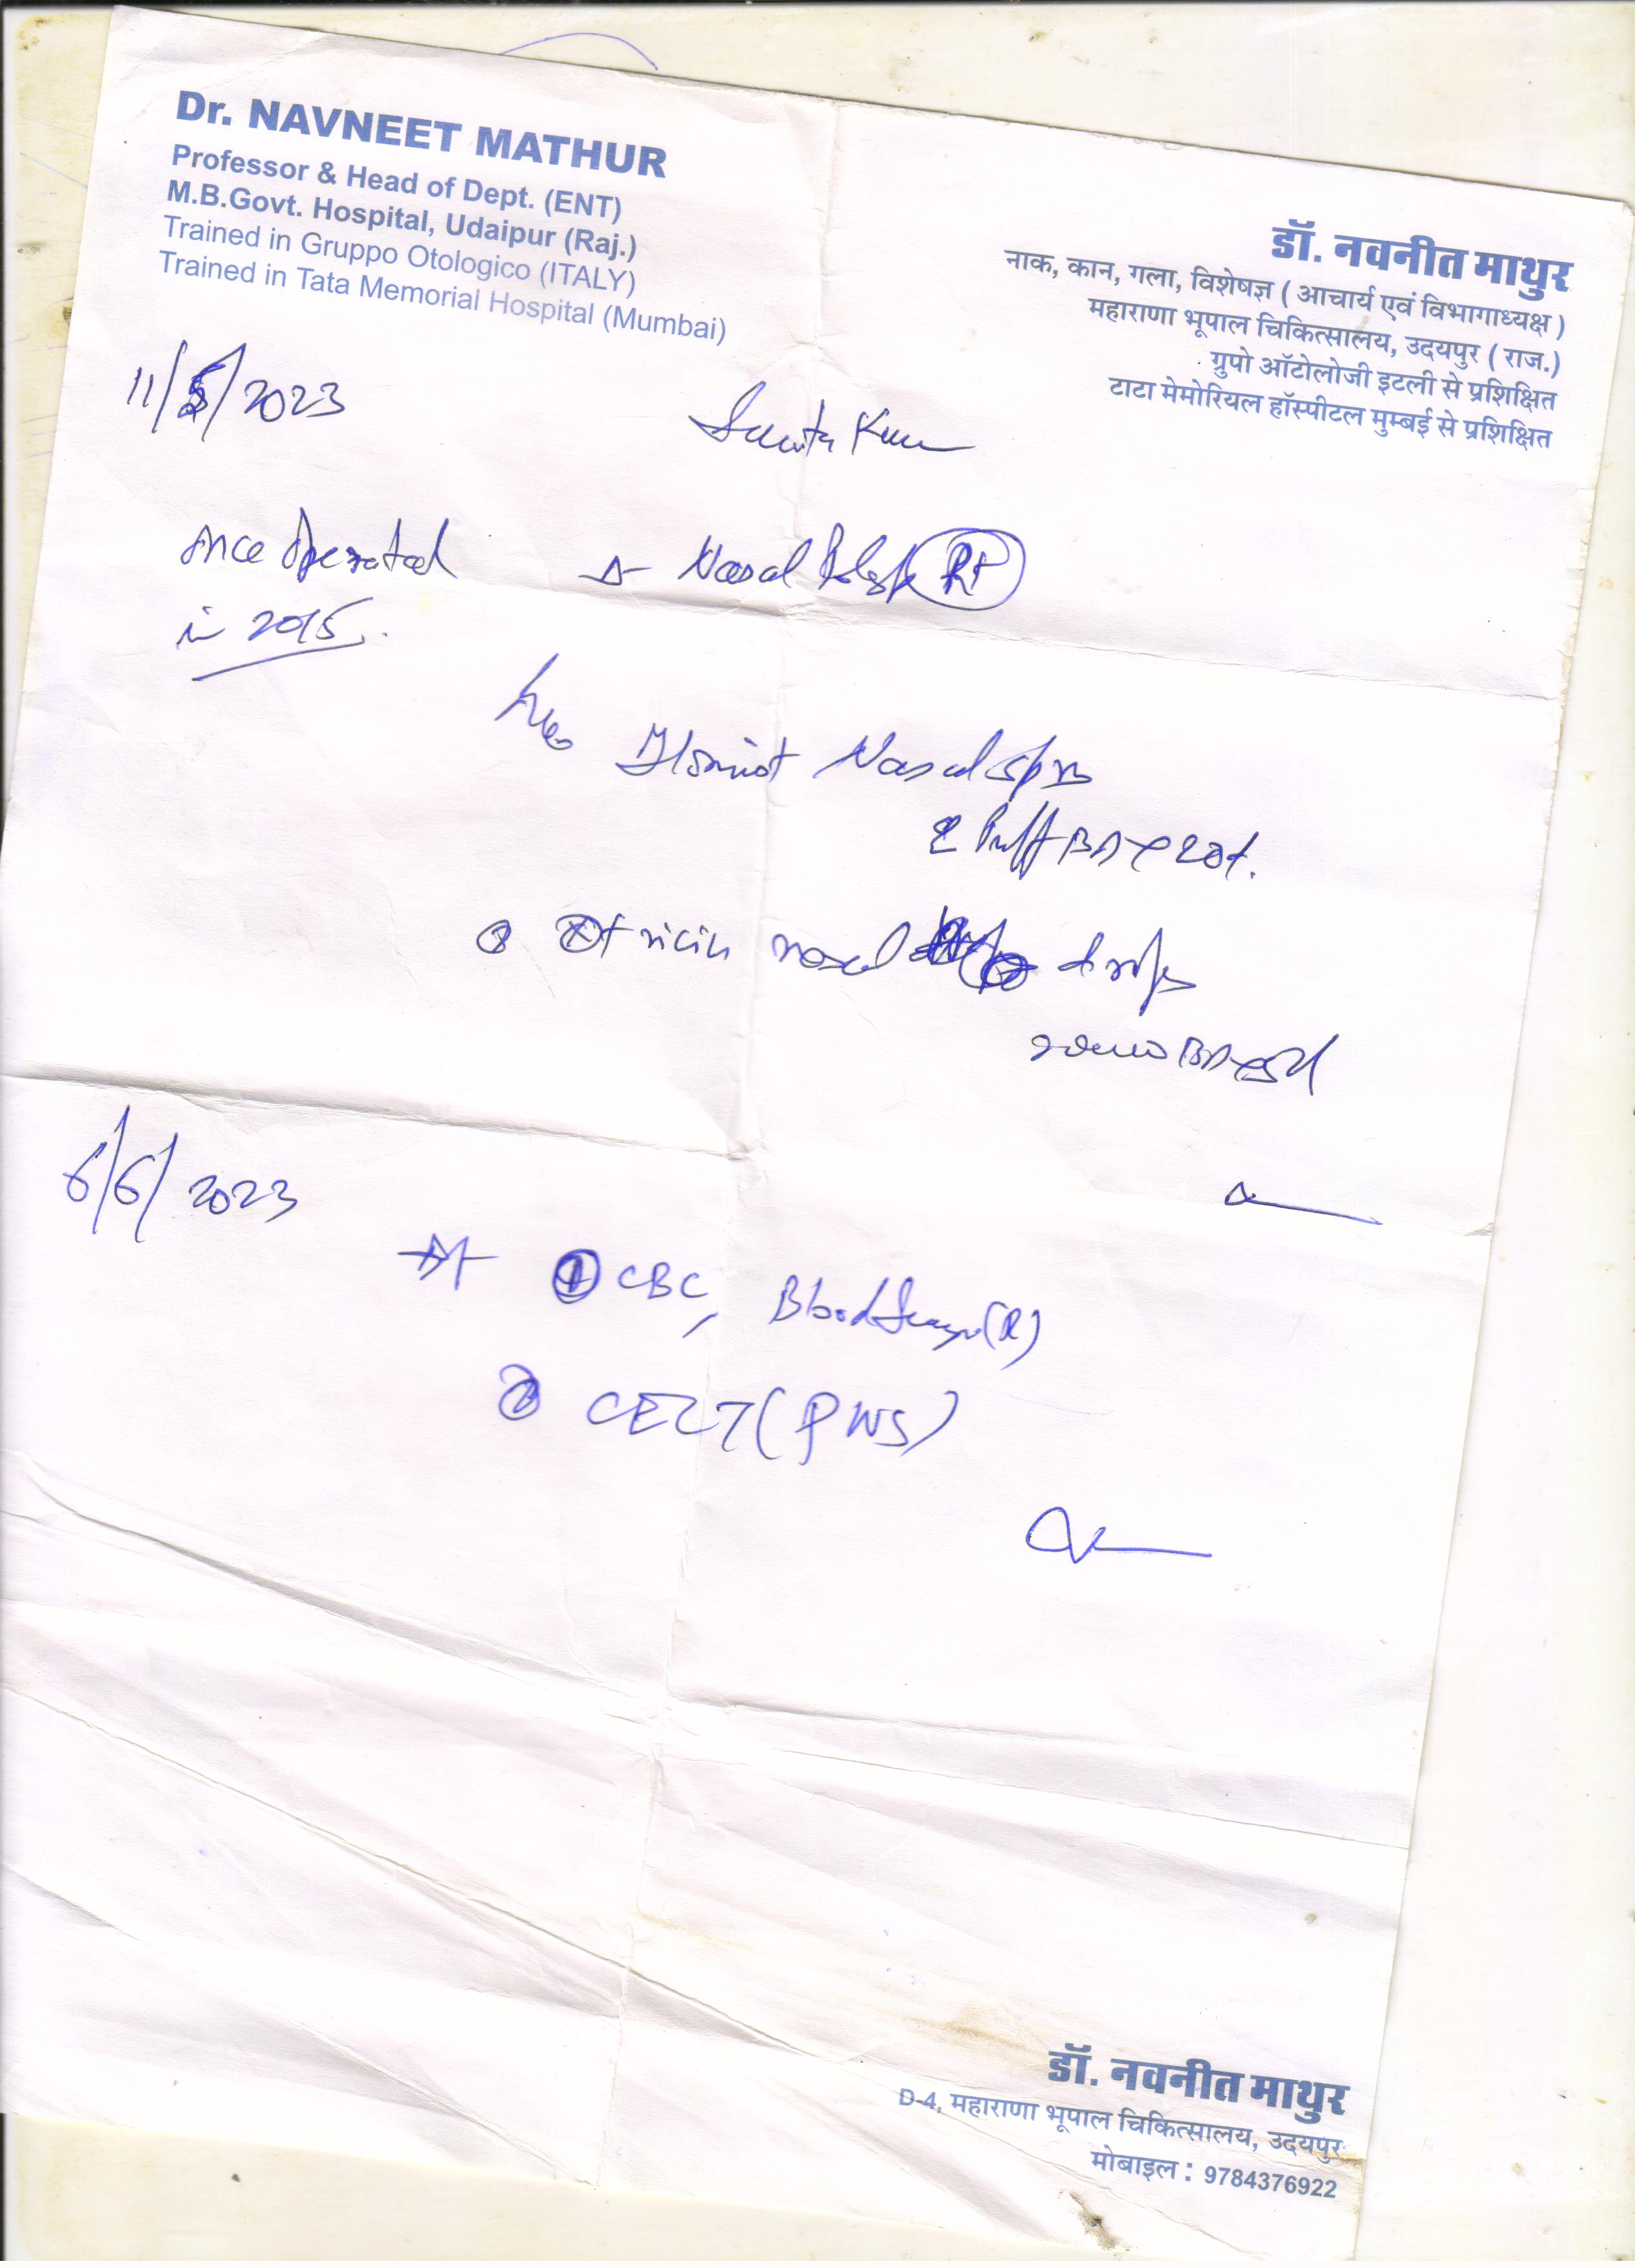 Dr. NAVNEET MATHUR
Professor & Head of Dept. (ENT)
M.B.Govt. Hospital, Udaipur (Raj.)
Trained in Gruppo Otologico (ITALY)
Trained in Tata Memorial Hospital (Mumbai)
डॉ. नवनीत माथुर
नाक, कान, गला, विशेषज्ञ ( आचार्य एवं विभागाध्यक्ष )
महाराणा भूपाल चिकित्सालय, उदयपुर ( राज.)
ग्रुपो ऑटोलोजी इटली से प्रशिक्षित
टाटा मेमोरियल हॉस्पीटल मुम्बई से प्रशिक्षित
11/5/2023
once operated
in 2015.
Nasal Rt
Nasal
2 Puff BD
nasal drops
6/6/2023
① CBC, Blood (R)
② CECT (PNS)
डॉ. नवनीत माथुर
D-4, महाराणा भूपाल चिकित्सालय, उदयपुर
मोबाइल : 9784376922